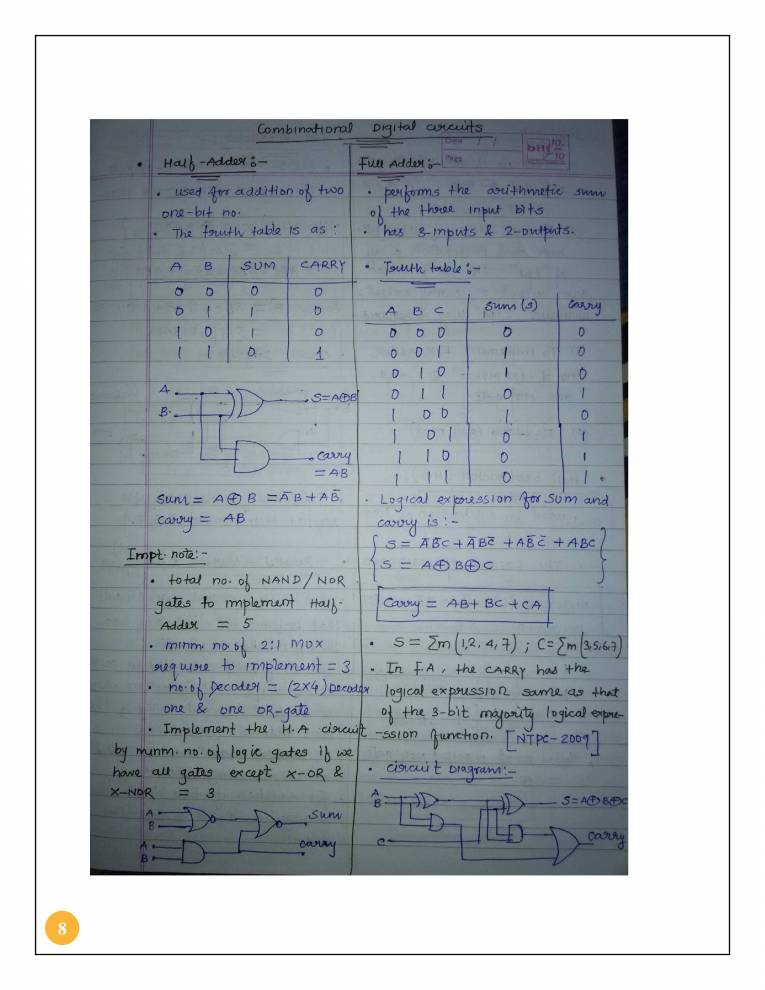 Combinational Digital Circuits
Date / /
Page
• Half-Adder:-
• used for addition of two
one-bit no.
• The truth table is as:
A B SUM CARRY
0 0 0 0
0 1 1 0
1 0 1 0
1 1 0 1
A
B
S=A⊕B
Carry
= AB
Sum = A⊕B = A̅B + AB̅
Carry = AB
Impt. note:-
• total no. of NAND/NOR
gates to implement Half-
Adder = 5
• minm. no of 2:1 MUX
require to implement = 3
• no. of Decoder = (2x4) Decoder
one & one OR-gate
• Implement the H.A circuit
by minm. no. of logic gates if we
have all gates except X-OR &
X-NOR = 3
A
B
Sum
A
B
Carry
Full Adder:-
• performs the arithmetic sum
of the three input bits
• has 3-inputs & 2-outputs.
• Truth table:-
A B C Sum (S) Carry
0 0 0 0 0
0 0 1 1 0
0 1 0 1 0
0 1 1 0 1
1 0 0 1 0
1 0 1 0 1
1 1 0 0 1
1 1 1 0 1
• Logical expression for Sum and
carry is:-
S = A̅B̅C + A̅BC̅ + AB̅C̅ + ABC
S = A⊕B⊕C
Carry = AB + BC + CA
• S = Σm(1,2,4,7) ; C = Σm(3,5,6,7)
• In F.A, the CARRY has the
logical expression same as that
of the 3-bit majority logical expre-
-ssion function. [NTPC-2009]
• Circuit Diagram:-
A
B
S=A⊕B⊕C
C
Carry
8